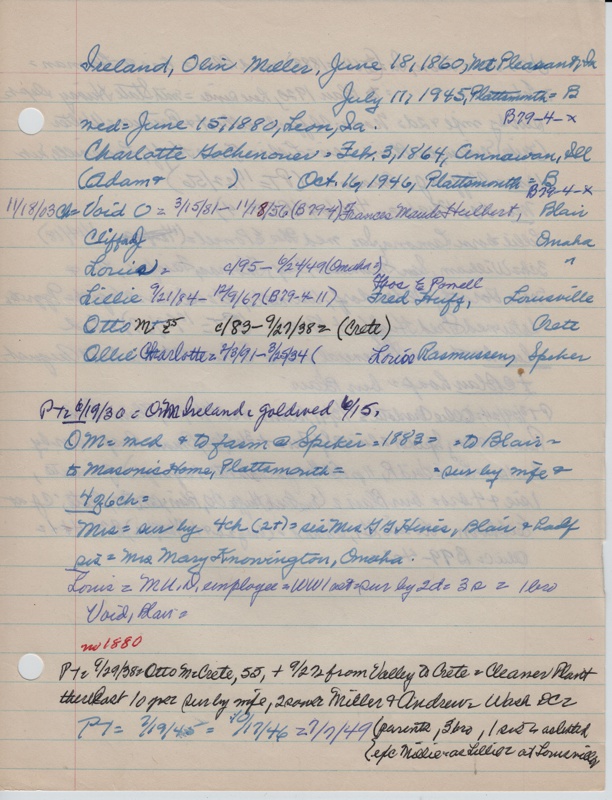 Ireland, Olin Miller, June 18, 1860, Mt Pleasant, Ia
July 11, 1945, Plattsmouth = B
B79-4-x
med = June 15, 1880, Leon, Ia.
Charlotte Gochenour = Feb. 3, 1864, Annawan, Ill
(Adam & ) Oct. 16, 1946, Plattsmouth = B
B79-4-x
11/18/03 Ch = Void O = 3/15/81 - 11/18/56 (B79-4) Frances Maude Heilbert, Blair
Cliff Omaha
Louis = c/95 - 6/24/49 (Omaha =) "
Hos E Powell
Lillie 9/21/84 - 12/9/67 (B79-4-11) Fred Huff, Louisville
Otto M = c/83 - 9/27/38 = (Crete) Crete
Ollie Charlotte = 2/3/91 - 3/25/34 ( Louis Rasmussen, Spiker
P+ = 6/19/30 = O M Ireland = gold wed 6/15,
O M = med & to farm @ Spiker = 1883 = = to Blair =
to Masonic Home, Plattsmouth = = sur by wife &
4 ch =
Mrs = sur by 4 ch (2+) = sis Mrs G G Hines, Blair & half
sis = Mrs Mary Knowington, Omaha.
Louis = M.U.D. employee = WW1 = sur by 2d = 3 s = 1 bro
Void, Blair =
no 1880
P+ = 9/29/38 = Otto M = Crete, 55, + 9/27 from Valley to Crete = Cleaner Plant
there last 10 yrs sur by wife, 2 sons = Miller & Andrew = Wash DC =
P+ = 7/19/45 = 10/17/46 = 7/7/49 (parents, 3 bro, 1 sis as listed
(exc Millie = as Lillie = at Louisville)